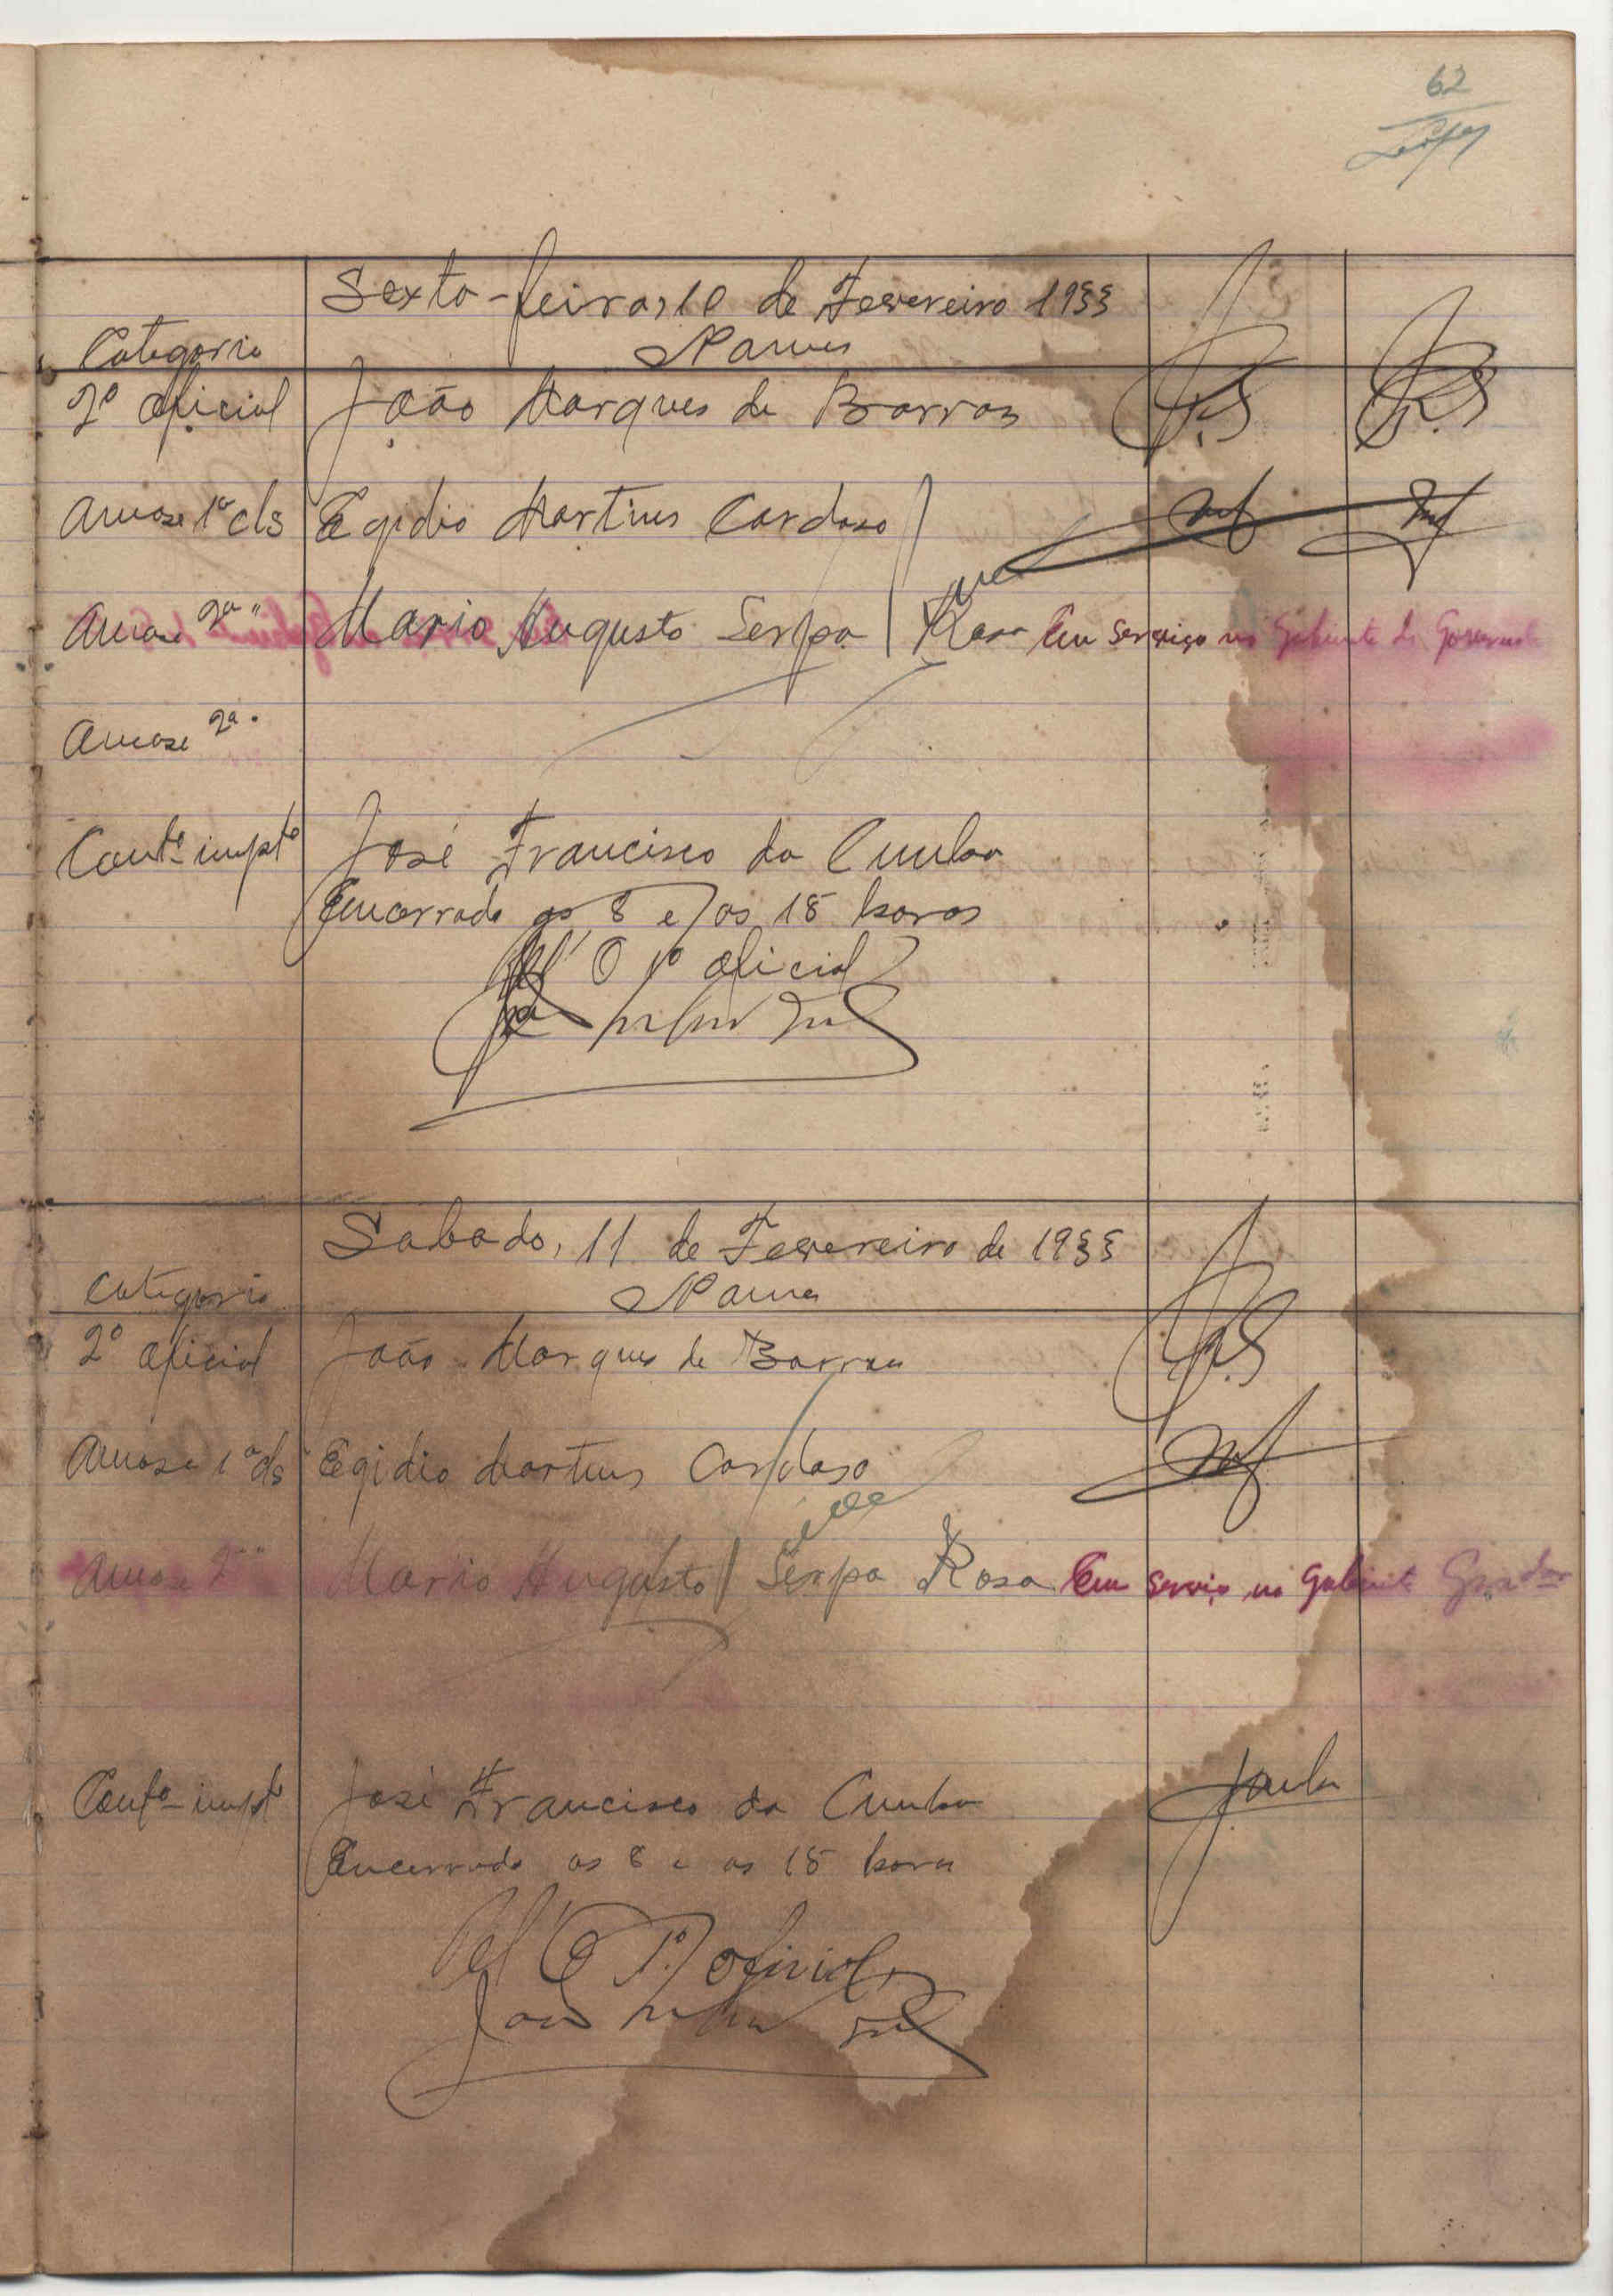 62
Sexta-feira, 10 de Fevereiro 1933
Categoria Nomes
2º oficial João Marques de Barros
Aman. 1ª cls Egidio Martins Cardoso
Aman. 2ª " Mario Augusto Serpa Rosa Em serviço no Gabinete do Governo
Aman. 2ª "
Contº impº José Francisco da Cunha
Encerrado as 8 e as 15 horas
Pel' O 1º oficial
Sabado, 11 de Fevereiro de 1933
Categoria Nomes
2º oficial João Marques de Barros
Aman. 1ª cls Egidio Martins Cardoso
Aman. 2ª " Mario Augusto Serpa Rosa Em serviço no Gabinete
Contº impº José Francisco da Cunha
Encerrado as 8 e as 15 horas
Pel' O 1º oficial